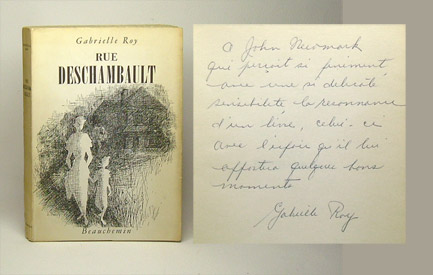 Gabrielle Roy
RUE
DESCHAMBAULT
Beauchemin
A John Newmark
qui perçoit si finement
avec une si délicate
sensibilité la résonnance
d'un livre, celui-ci
avec l'espoir qu'il lui
apportera quelques bons
moments
Gabrielle Roy